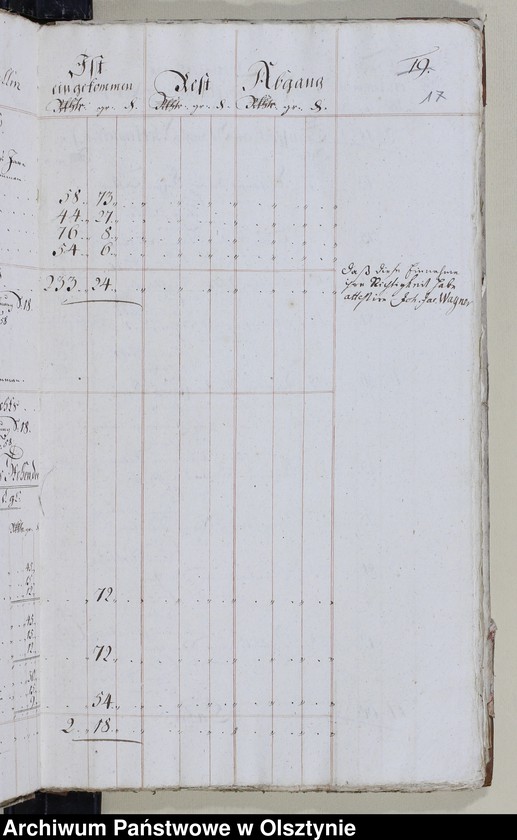 19.
17
Ist
eingekommen
Rest
Abgang
Rthlr. gr. ₰.
Rthlr. gr. ₰.
Rthlr. gr. ₰.
58 73
44 27
76 8
54 6
233 24
daß diese Einnahme
ihre Richtigkeit habe
attestire Joh. Jac. Wagner
72
72
54
2 18
Archiwum Państwowe w Olsztynie